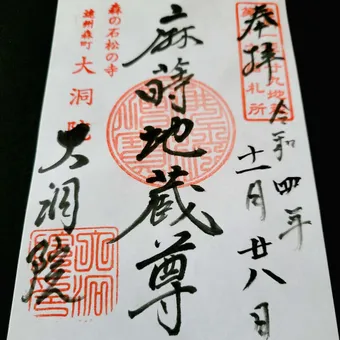 奉拝
令和四年
十一月廿八日
麻蒔地蔵尊
森の石松の寺
遠州森町 大洞院
大洞院